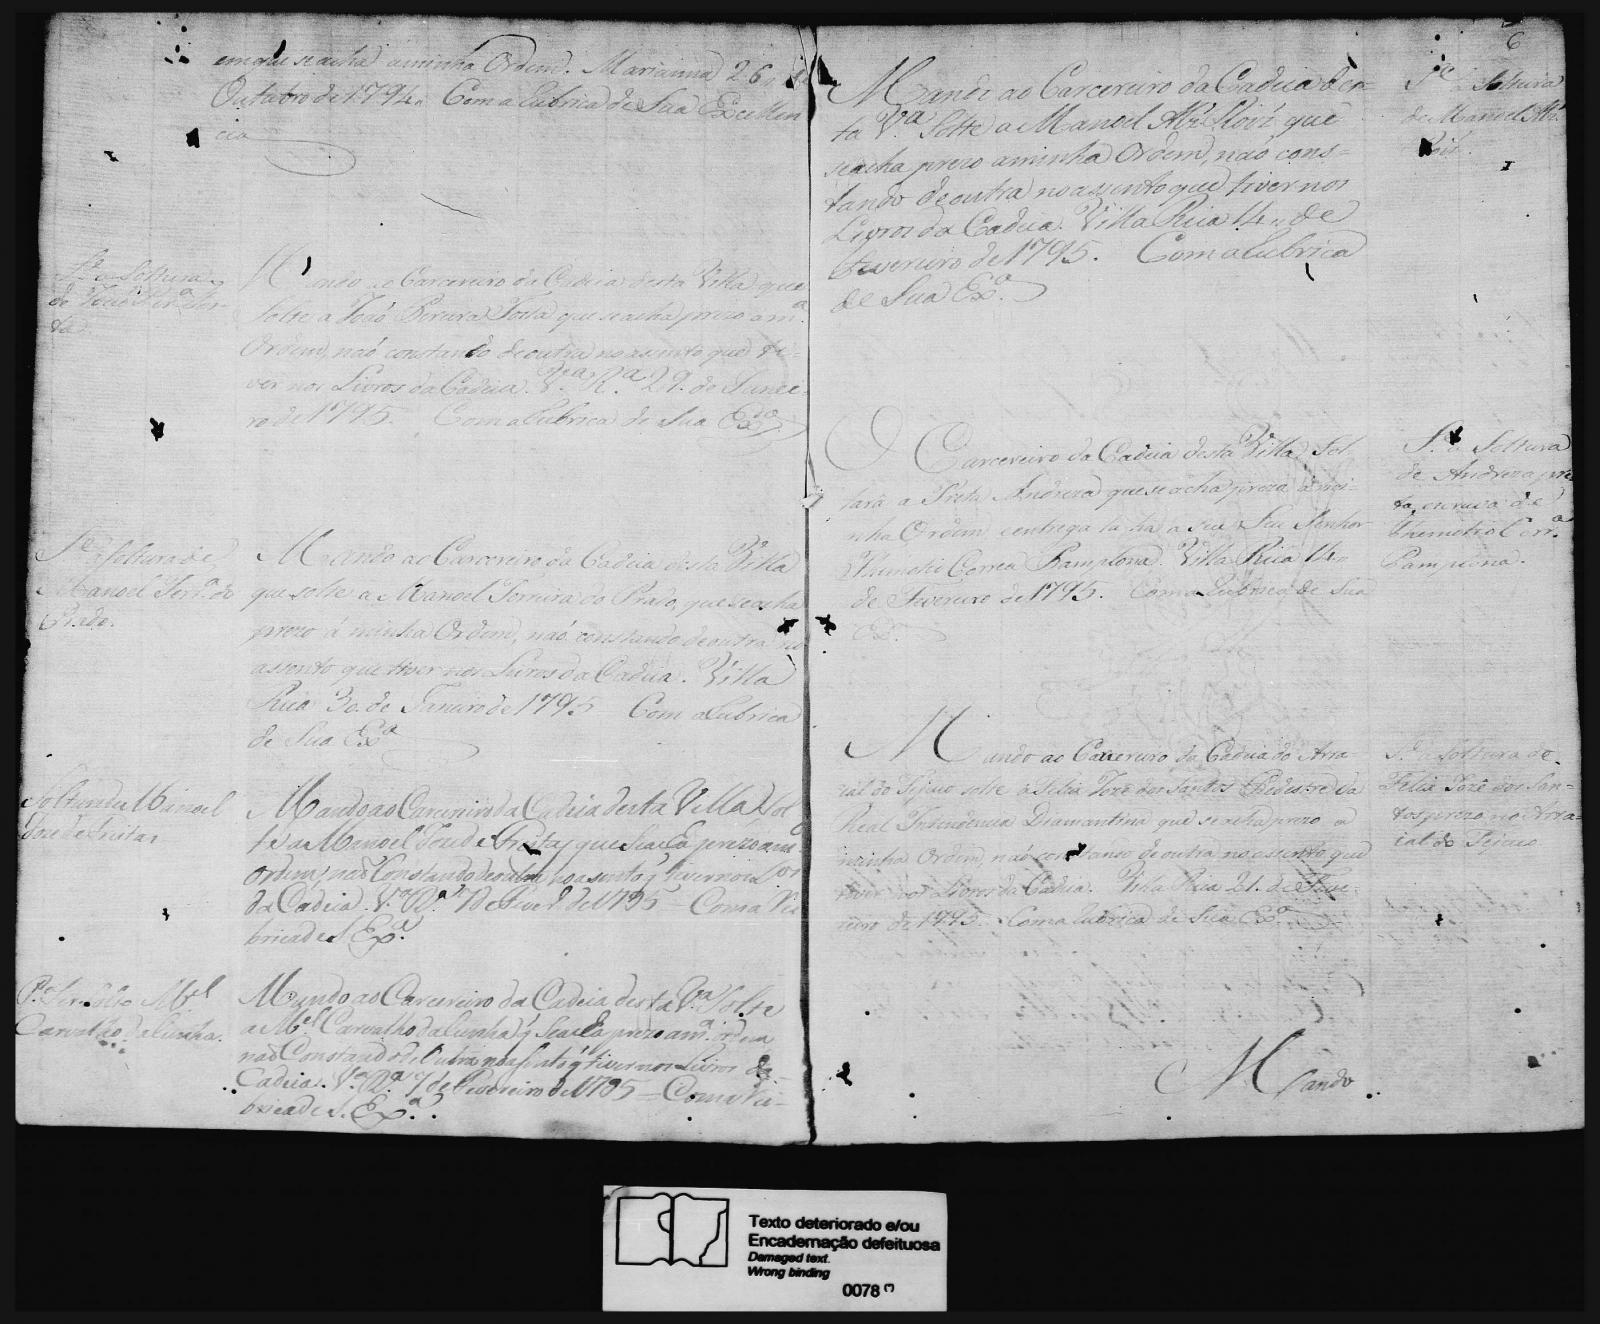 em que se acha a minha Ordem. Marianna 26 de
Outubro de 1794. Com a Rubrica de Sua Excellen
cia
Pª. a Soltura
de João Perª. Cos-
ta.
Mando ao Carcereiro da Cadeia desta Villa que
Solte a João Pereira Costa que se acha prezo a mª.
Ordem, naõ constando de outra no assento que ti-
ver nos Livros da Cadeia. Vª. Rª. 29. de Janei-
ro de 1795. Com a Rubrica de Sua Exª.
Pª. a soltura de
Manoel Ferrª. do
Prado.
Mando ao Carcereiro da Cadeia desta Villa
que solte a Manoel Ferreira do Prado, que se acha
prezo á minha Ordem, naõ constando de outra no
assento que tiver nos Livros da Cadeia. Villa
Rica 30. de Janeiro de 1795 Com a Rubrica
de Sua Exª.
Soltura de Manoel
Joze de Freitas
Mando ao Carcereiro da Cadeia desta Villa Sol
te a Manoel Joze de Freitas que se acha prezo a m.
ordem, naõ Constando de outra no asento q tiver nos L.os
da Cadeia. Vª. Rª. 7 de Feverº de 1795 – Com a Ru
brica de S. Exª.
Pª. Ser Solto M.el
Carvalho da Cunha.
Mando ao Carcereiro da Cadeia desta Vª. Solte
a M.el Carvalho da Cunha q Se acha prezo a mª. ordem
naõ Constando de Outra no asento q tiver nos Livros da
Cadeia. Vª. Rª. 7 de Fevereiro de 1795 – Com a Ru-
brica de S. Exª.
6
Mando ao Carcereiro da Cadeia des-
ta Vª. Solte a Manoel Alz
que
se acha prezo a minha Ordem, naõ cons-
tando de outra no assento que tiver nos
Livros da Cadeia. Villa Rica 14 de
Fevereiro de 1795. Com a Rubrica
de Sua Exª.
Pª. a Soltura
de Manoel Alz.
O Carcereiro da Cadeia desta Villa Sol
tará a Preta Andreza que se acha preza á mi-
nha Ordem e entregala ha a seu Senhor
Correa Pamplona. Villa Rica 14
de Fevereiro de 1795. Com a Rubrica de Sua
Exª.
Pª. a Soltura
de Andreza pre
ta escrava de
Corrª.
Pamplona.
Mando ao Carcereiro da Cadeia do Arra
ial do Tejuco solte a Felix Joze dos Santos Pedestre da
Real Intendencia Diamantina que se acha prezo a
minha Ordem, naõ constando de outra no assento que
tiver nos Livros da Cadeia. Villa Rica 21. de Feve-
reiro de 1795. Com a Rubrica de Sua Exª.
Pª. a soltura de
Felix Joze dos San-
tos prezo no Arra-
ial do Tejuco
Mando
Texto deteriorado e/ou
Encadernação defeituosa
Damaged text.
Wrong binding
0078 (*)